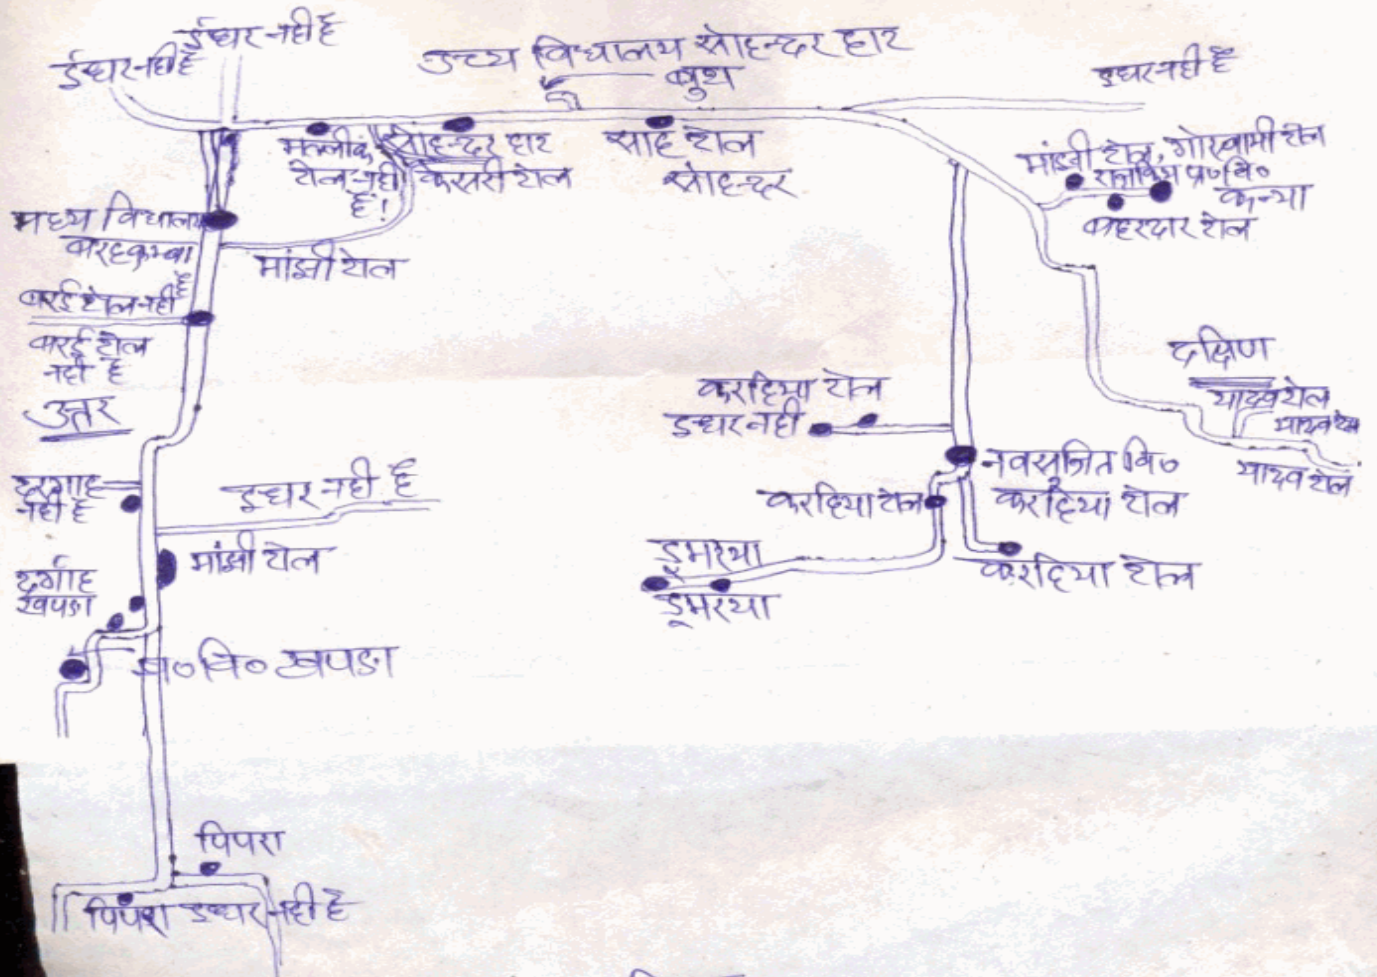 ईधर नही है
ईधर नही है
उच्च विधालय सोहन्दर हार
बुथ
इधर नही है
मल्लीक
टोल नही
है!
सोहन्दर हार
केसरी टोल
साह टोल
सोहन्दर
मांझी टोल, गोस्वामी टोल
प्रा० वि०
कन्या
बहरदार टोल
मध्य विधालय
बारहकुम्बा
मांझी टोल
बरई टोल नही है
बरई टोल
नही है
उत्तर
दक्षिण
यादव टोल
यादव टोल
यादव टोल
करहिया टोल
इधर नही
नवसृजित वि०
करहिया टोल
करहिया टोल
करहिया टोल
डूमरया
डूमरया
दरगाह
नही है
इधर नही है
मांझी टोल
दर्गाह
खपडा
वि० खपडा
पिपरा
पिपरा इधर नही है